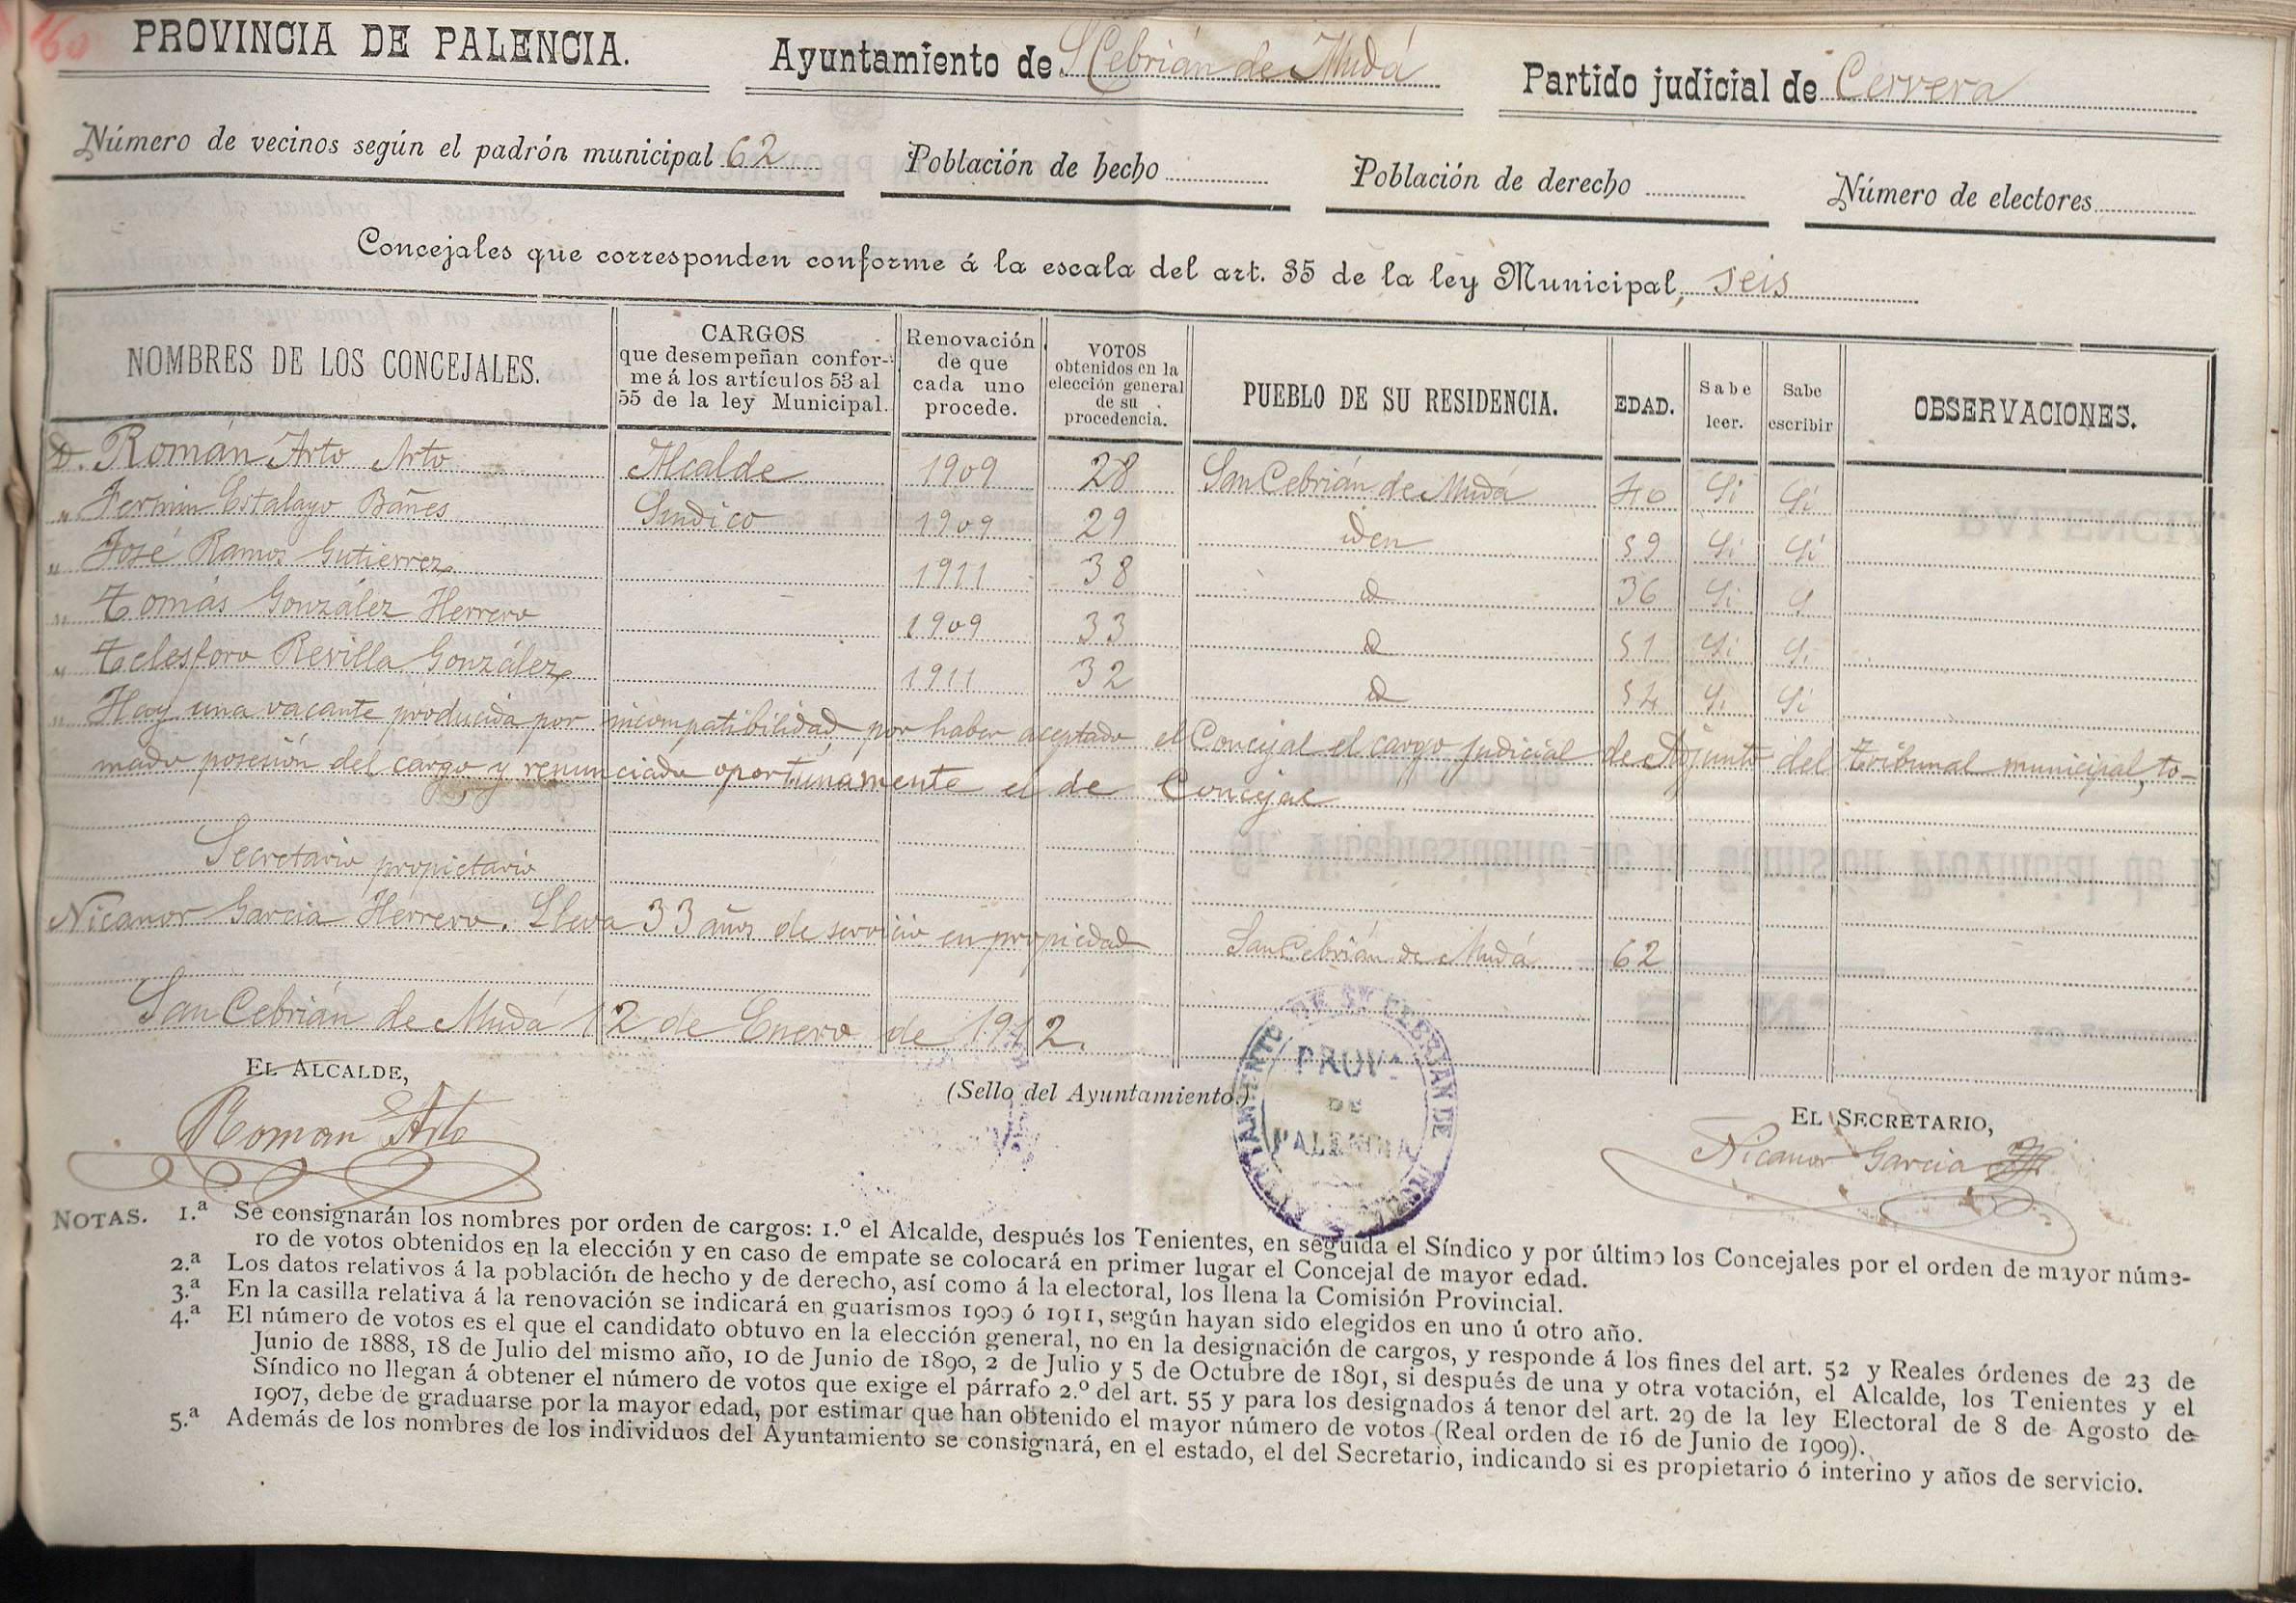 160
PROVINCIA DE PALENCIA. Ayuntamiento de S Cebrián de Mudá Partido judicial de Cervera
Número de vecinos según el padrón municipal 62 Población de hecho Población de derecho Número de electores
Concejales que corresponden conforme á la escala del art. 35 de la ley Municipal, seis
NOMBRES DE LOS CONCEJALES. CARGOS que desempeñan conforme á los artículos 53 al 55 de la ley Municipal. Renovación de que cada uno procede. VOTOS obtenidos en la elección general de su procedencia. PUEBLO DE SU RESIDENCIA. EDAD. Sabe leer. Sabe escribir OBSERVACIONES.
D. Román Arto Arto Alcalde 1909 28 San Cebrián de Mudá 40 Si Si
" Fermin Estalayo Báñes Sindico 1909 29 iden 59 Si Si
" José Ramos Gutierrez 1911 38 id 36 Si Si
" Tomás González Herrero 1909 33 id 51 Si Si
" Telesforo Revilla González 1911 32 id 54 Si Si
" Hay una vacante producida por incompatibilidad por haber aceptado el Concejal el cargo judicial de Adjunto del Tribunal municipal, to-
mado posesión del cargo y renunciado oportunamente el de Concejal
Secretario propietario
Nicanor Garcia Herrero. Lleva 33 años de servicio en propiedad San Cebrián de Mudá 62
San Cebrián de Mudá 12 de Enero de 1912.
EL ALCALDE,
Roman Arto
(Sello del Ayuntamiento.)
AYUNTAMIENTO DE SN CEBRIAN DE
PROVA
DE
PALENCIA
EL SECRETARIO,
Nicanor Garcia
NOTAS. 1.ª Se consignarán los nombres por orden de cargos: 1.º el Alcalde, después los Tenientes, en seguida el Síndico y por último los Concejales por el orden de mayor núme-
ro de votos obtenidos en la elección y en caso de empate se colocará en primer lugar el Concejal de mayor edad.
2.ª Los datos relativos á la población de hecho y de derecho, así como á la electoral, los llena la Comisión Provincial.
3.ª En la casilla relativa á la renovación se indicará en guarismos 1909 ó 1911, según hayan sido elegidos en uno ú otro año.
4.ª El número de votos es el que el candidato obtuvo en la elección general, no en la designación de cargos, y responde á los fines del art. 52 y Reales órdenes de 23 de
Junio de 1888, 18 de Julio del mismo año, 10 de Junio de 1890, 2 de Julio y 5 de Octubre de 1891, si después de una y otra votación, el Alcalde, los Tenientes y el
Síndico no llegan á obtener el número de votos que exige el párrafo 2.º del art. 55 y para los designados á tenor del art. 29 de la ley Electoral de 8 de Agosto de
1907, debe de graduarse por la mayor edad, por estimar que han obtenido el mayor número de votos (Real orden de 16 de Junio de 1909).
5.ª Además de los nombres de los individuos del Ayuntamiento se consignará, en el estado, el del Secretario, indicando si es propietario ó interino y años de servicio.